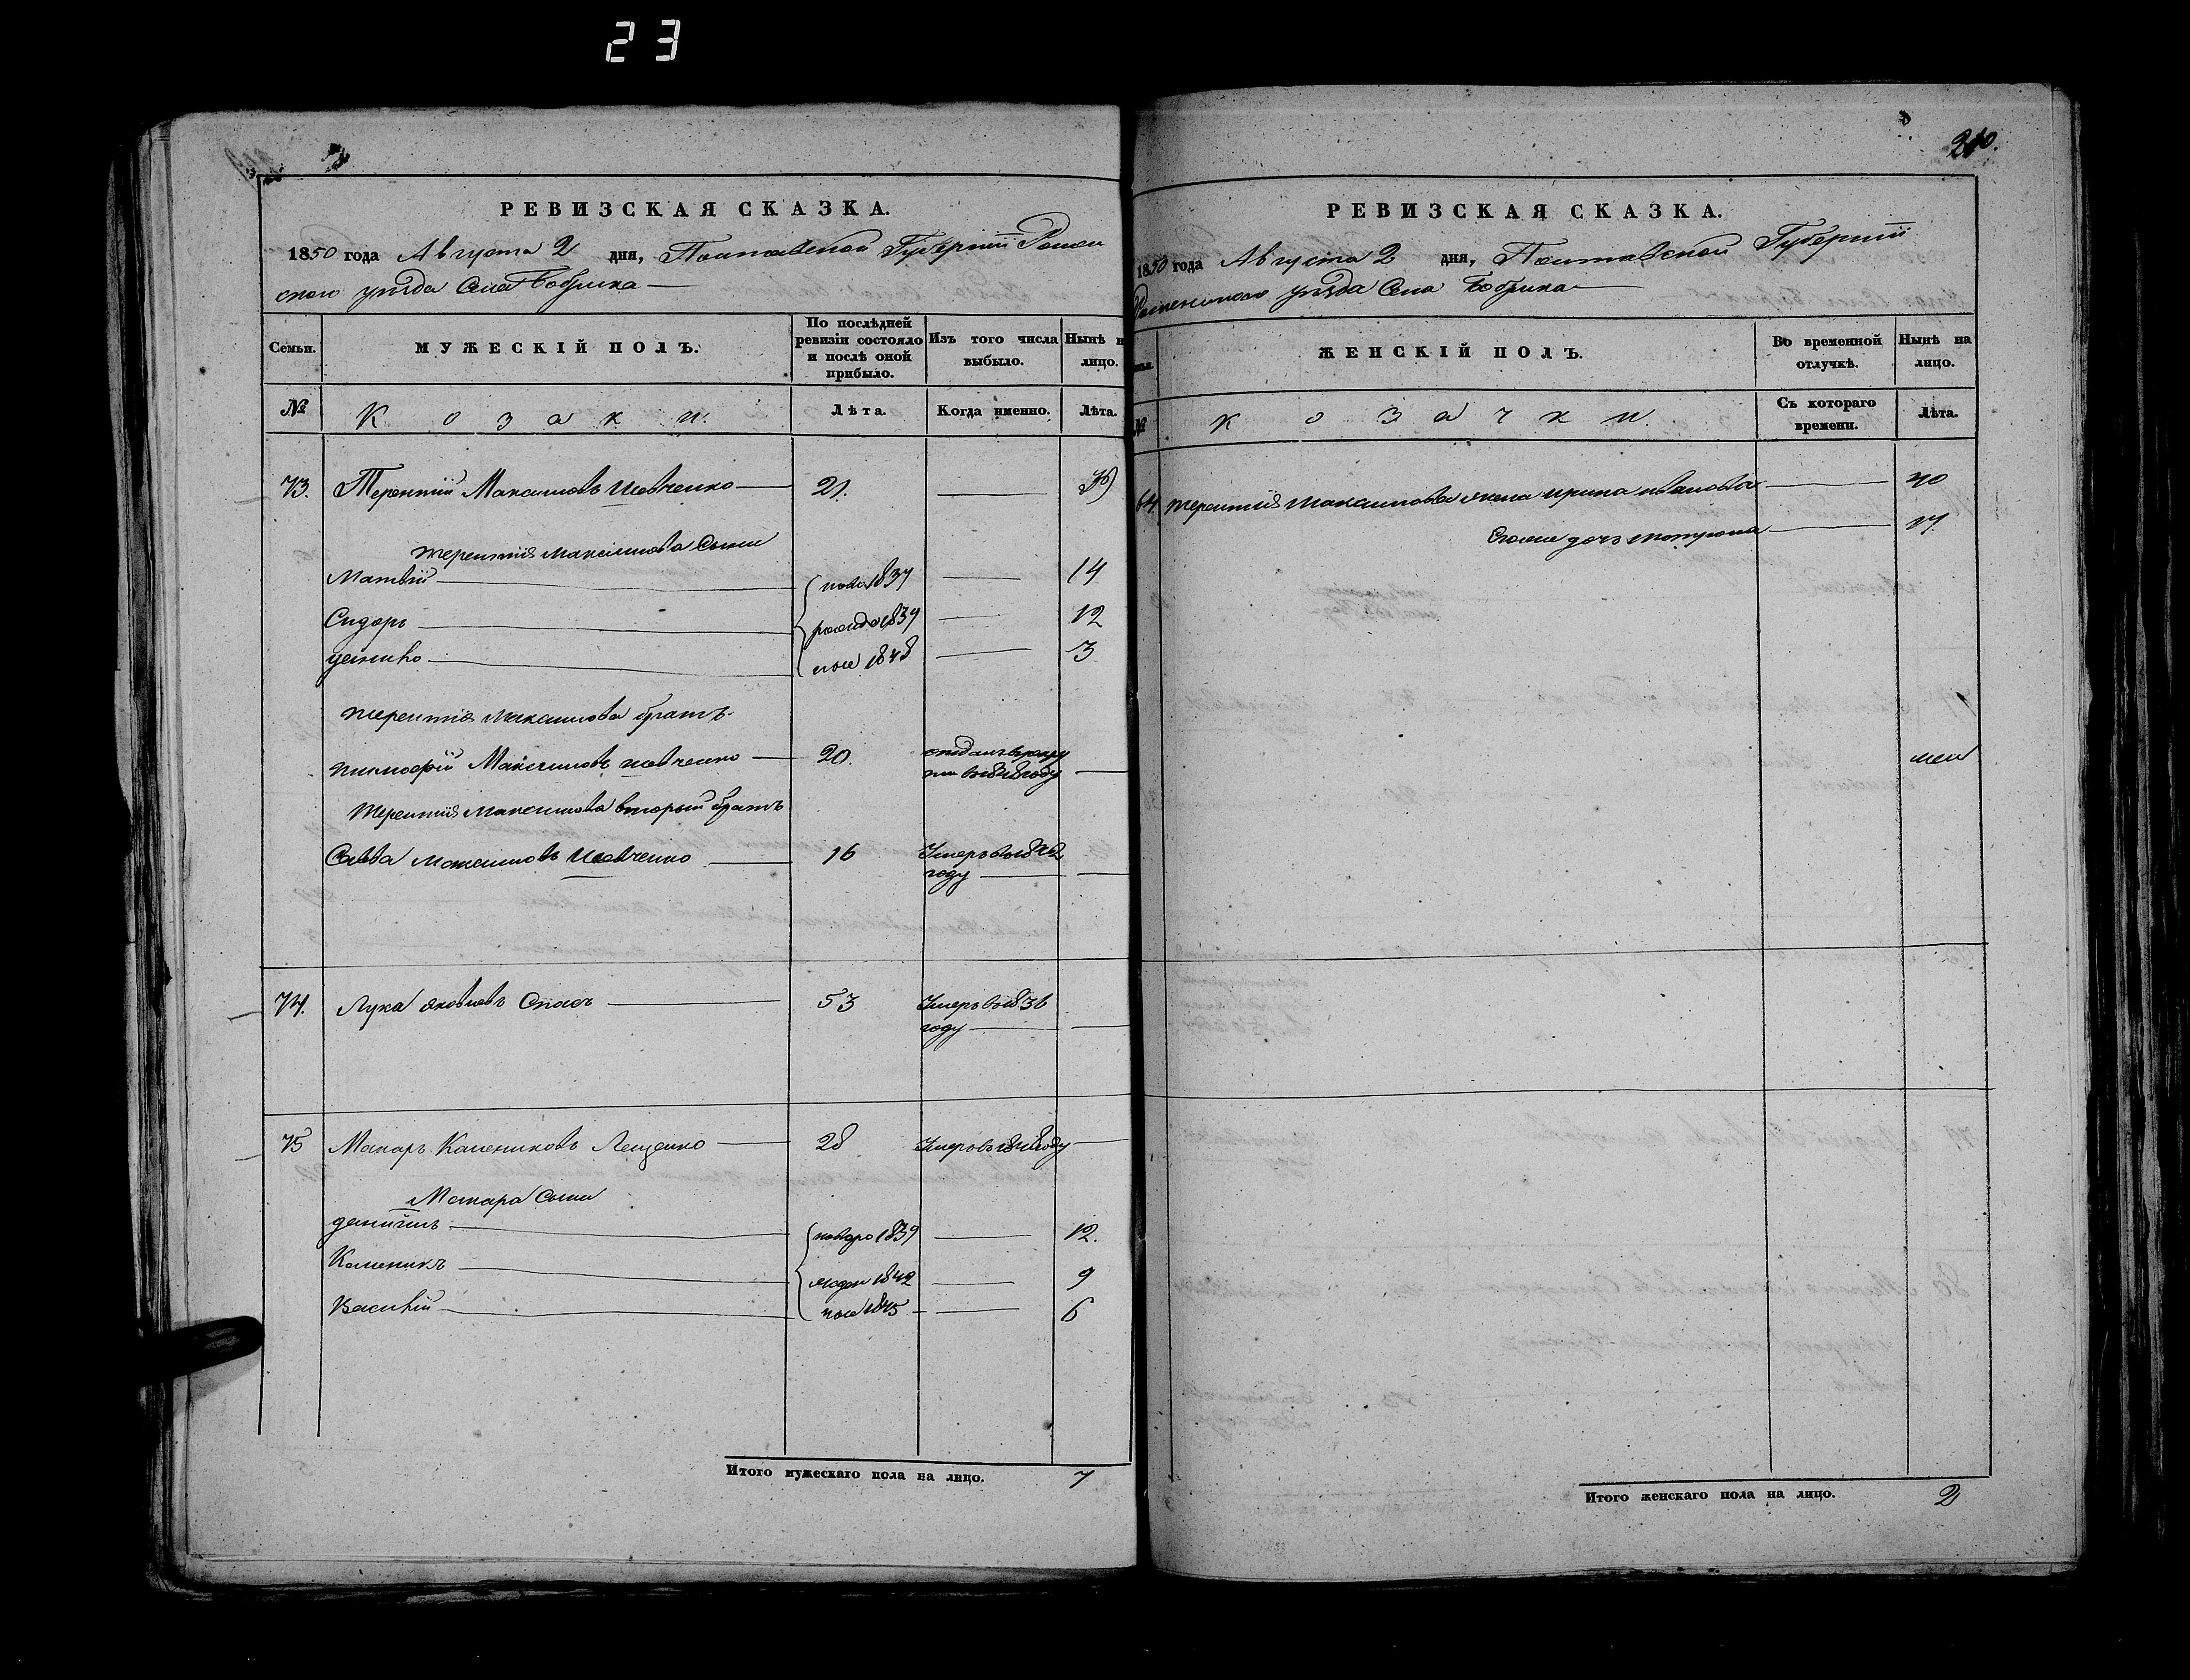 23
РЕВИЗСКАЯ СКАЗКА.
1850 года Августа 2 дня, Полтавской Губерніи Ромен
скаго уѣзда Села Бобрика
Семьи.
МУЖЕСКІЙ ПОЛЪ.
По послѣдней ревизіи состояло и послѣ оной прибыло.
Изъ того числа выбыло.
Нынѣ н
лицо.
№
Козаки.
Лѣта.
Когда именно.
Лѣта.
73. Терентій Максимовъ Шевченко 21.
Терентія Максимова Сыни
Матвій 1837 14
Сидоръ 1839 12
1848 3
Терентія Максимова братъ
Тимофій Максимовъ Шевченко 20. отданъ в рекру
ти в 1848 году
Терентія Максимова вторый братъ
Савва Максимовъ Шевченко 16 Умеръ в 1842
году
74. Лука Яковлевъ Спасъ 53 Умеръ в 1836
году
75 Макаръ Калениковъ Лещенко 28 Умеръ в 1848 году
Макара Сыни
Даніилъ новоро 1839 12.
Каленикъ жден 1842 9
Василій ные 1845 6
Итого мужескаго пола на лицо. 7
210.
РЕВИЗСКАЯ СКАЗКА.
1850 года Августа 2 дня, Полтавской Губерніи
Роменскаго уѣзда Села Бобрика
ЖЕНСКІЙ ПОЛЪ.
Во временной отлучкѣ.
Нынѣ на лицо.
№
Козачки.
Съ котораго времени.
Лѣта.
Терентія Максимова жена Ирина Иванова 40
дочь Мотрона 17
Итого женскаго пола на лицо. 2